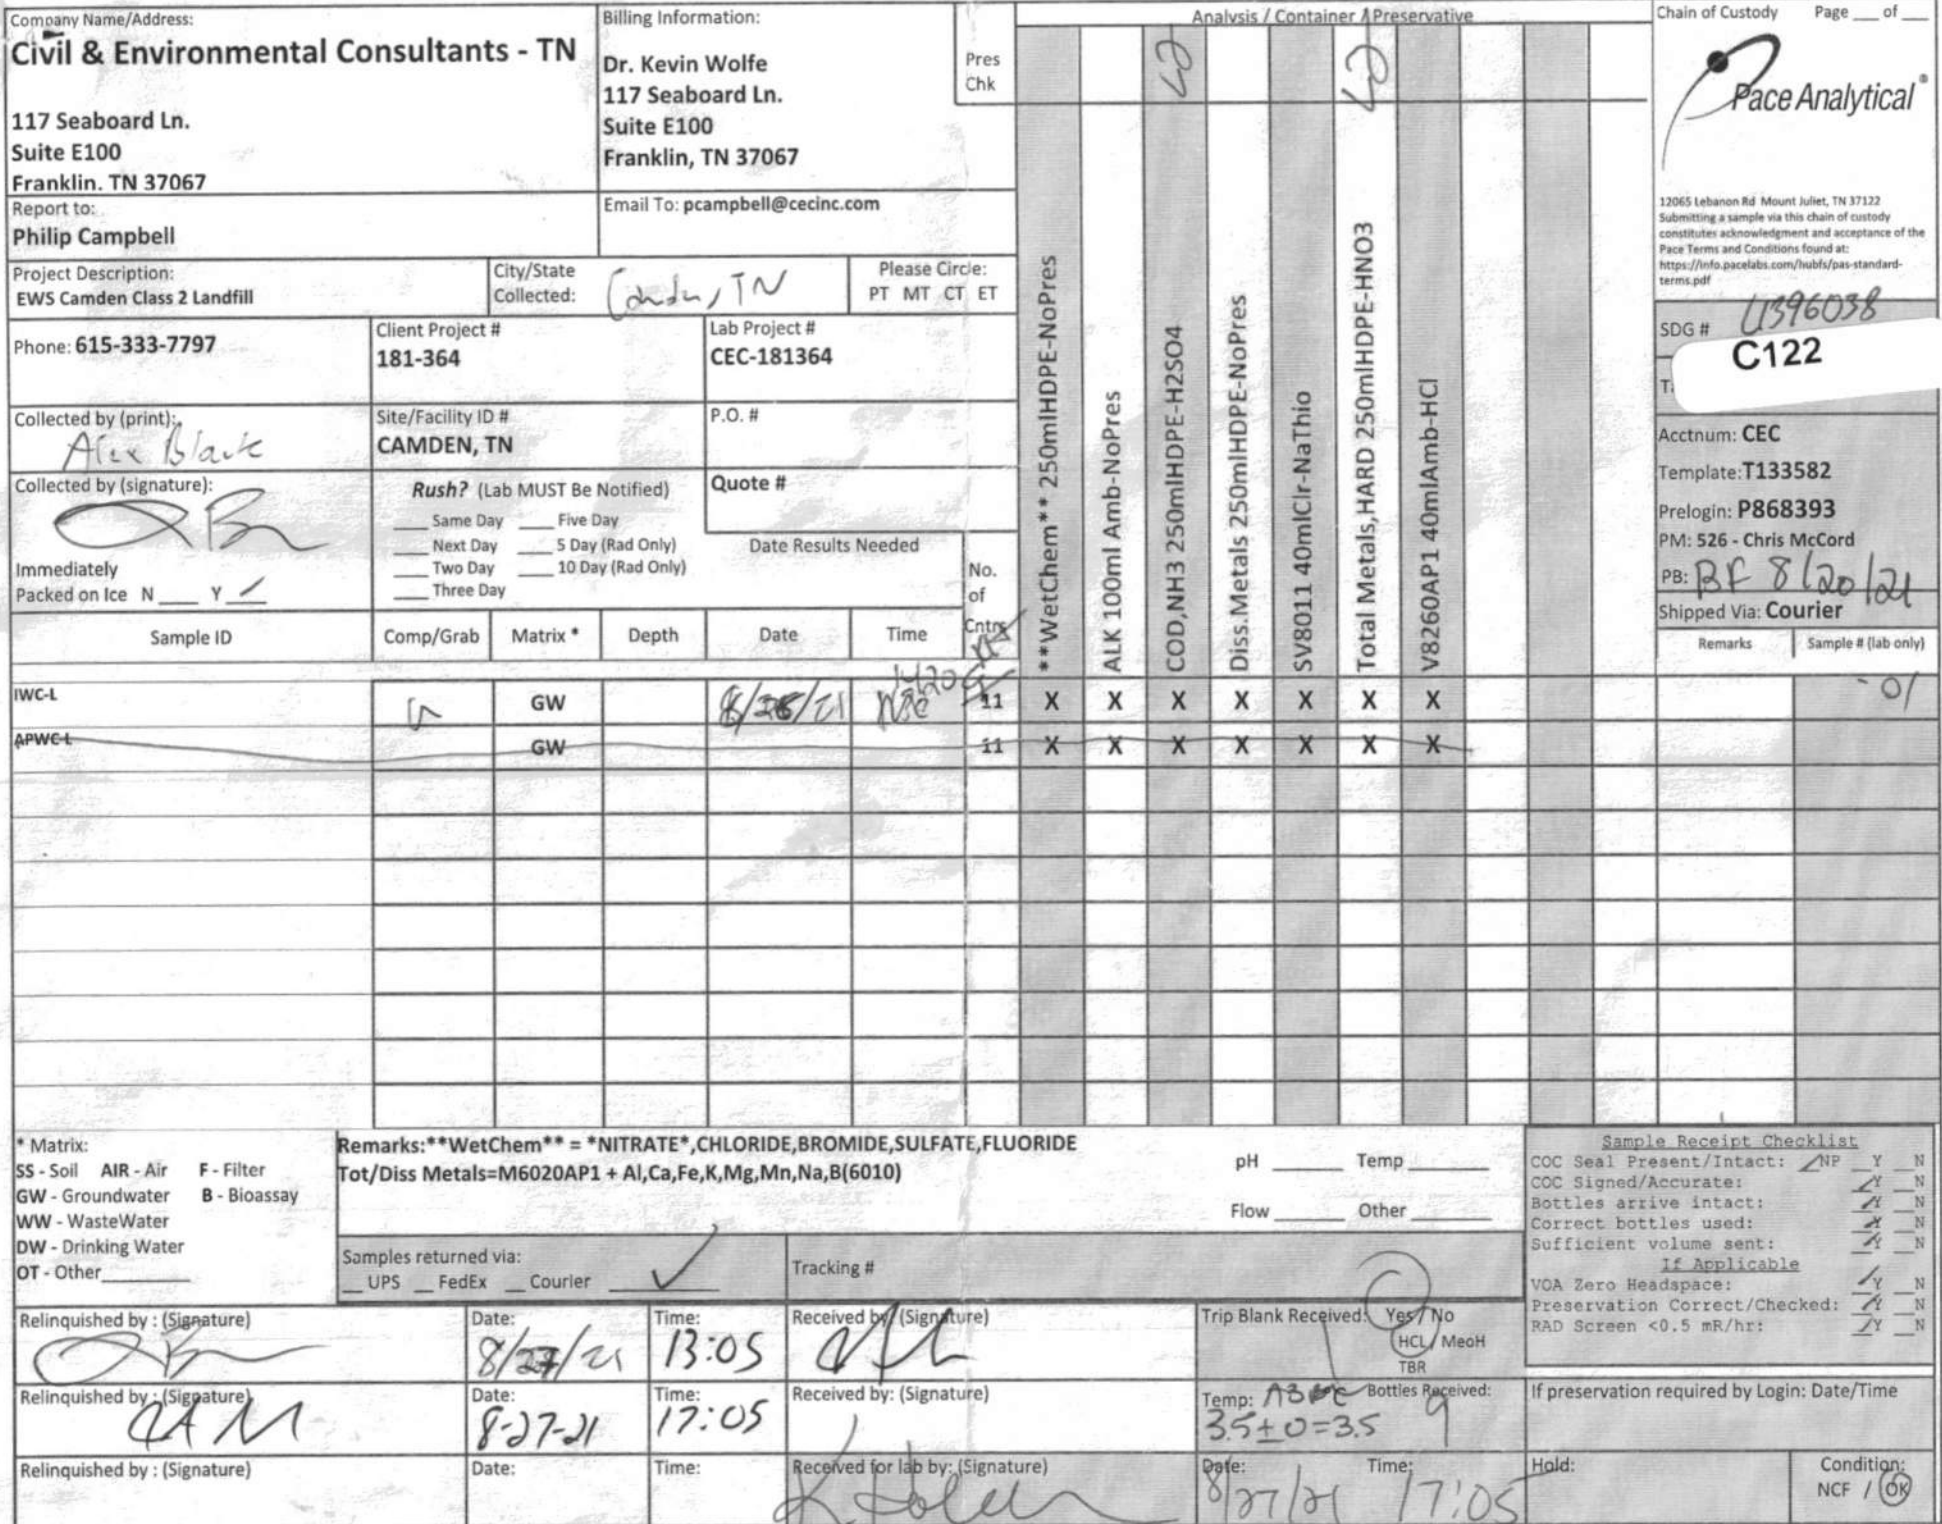 Company Name/Address:
Civil & Environmental Consultants - TN
117 Seaboard Ln.
Suite E100
Franklin. TN 37067
Billing Information:
Dr. Kevin Wolfe
117 Seaboard Ln.
Suite E100
Franklin, TN 37067
Pres
Chk
Analysis / Container / Preservative
Chain of Custody Page ___ of ___
Pace Analytical®
12065 Lebanon Rd Mount Juliet, TN 37122
Submitting a sample via this chain of custody
constitutes acknowledgment and acceptance of the
Pace Terms and Conditions found at:
https://info.pacelabs.com/hubfs/pas-standard-
terms.pdf
Report to:
Philip Campbell
Email To: pcampbell@cecinc.com
Project Description:
EWS Camden Class 2 Landfill
City/State
Collected: Camden, TN
Please Circle:
PT MT CT ET
Phone: 615-333-7797
Client Project #
181-364
Lab Project #
CEC-181364
Collected by (print):
Alex
Site/Facility ID #
CAMDEN, TN
P.O. #
Collected by (signature):
Rush? (Lab MUST Be Notified)
___ Same Day ___ Five Day
___ Next Day ___ 5 Day (Rad Only)
___ Two Day ___ 10 Day (Rad Only)
___ Three Day
Quote #
Date Results Needed
Immediately
Packed on Ice N ___ Y ___
No.
of
Cntrs
**WetChem** 250mlHDPE-NoPres
ALK 100ml Amb-NoPres
COD,NH3 250mlHDPE-H2SO4
Diss.Metals 250mlHDPE-NoPres
SV8011 40mlClr-NaThio
Total Metals,HARD 250mlHDPE-HNO3
V8260AP1 40mlAmb-HCl
SDG # L1396038
C122
Acctnum: CEC
Template:T133582
Prelogin: P868393
PM: 526 - Chris McCord
PB: BF 8/20/21
Shipped Via: Courier
Remarks Sample # (lab only)
Sample ID Comp/Grab Matrix * Depth Date Time
IWC-L G GW 1420 11 X X X X X X X -01
APWC-L GW 11 X X X X X X X
* Matrix:
SS - Soil AIR - Air F - Filter
GW - Groundwater B - Bioassay
WW - WasteWater
DW - Drinking Water
OT - Other___
Remarks:**WetChem** = *NITRATE*,CHLORIDE,BROMIDE,SULFATE,FLUORIDE
Tot/Diss Metals=M6020AP1 + Al,Ca,Fe,K,Mg,Mn,Na,B(6010)
pH ___ Temp ___
Flow ___ Other ___
Samples returned via:
__ UPS __ FedEx __ Courier ___
Tracking #
Sample Receipt Checklist
COC Seal Present/Intact: __NP __Y __N
COC Signed/Accurate: __Y __N
Bottles arrive intact: __Y __N
Correct bottles used: __Y __N
Sufficient volume sent: __Y __N
If Applicable
VOA Zero Headspace: __Y __N
Preservation Correct/Checked: __Y __N
RAD Screen <0.5 mR/hr: __Y __N
Relinquished by : (Signature)
Date: 8/27/21
Time: 13:05
Received by: (Signature)
Trip Blank Received: Yes / No
HCL / MeoH
TBR
Relinquished by : (Signature)
Date: 8-27-21
Time: 17:05
Received by: (Signature)
Temp:
3.5±0=3.5
Bottles Received:
9
If preservation required by Login: Date/Time
Relinquished by : (Signature)
Date:
Time:
Received for lab by: (Signature)
Date: 8/27/21
Time: 17:05
Hold:
Condition:
NCF / OK